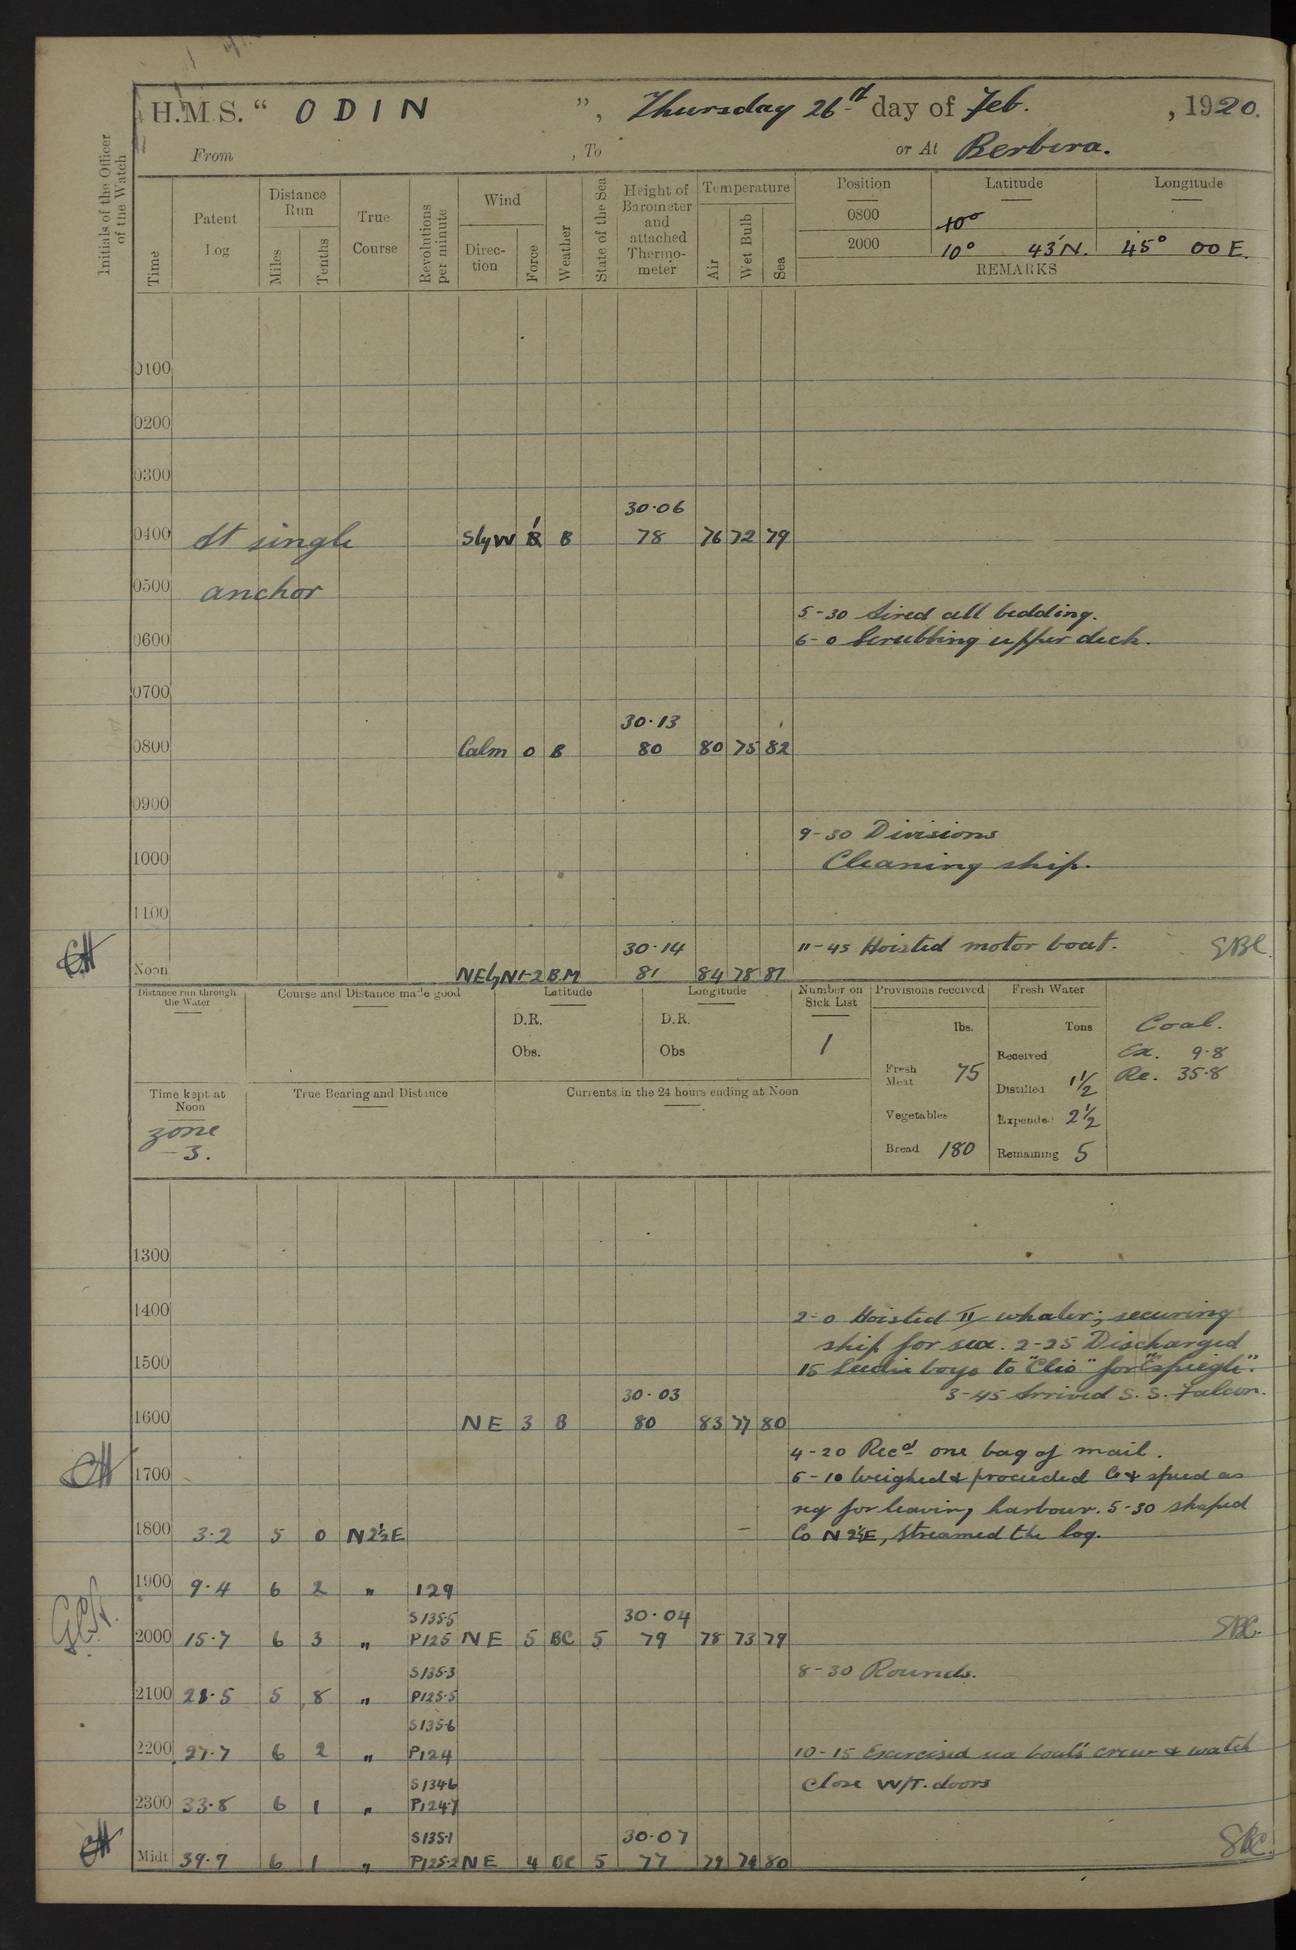 H.M.S. “ ODIN ”, Thursday 26th day of Feb. , 1920.
From , To or At Berbera.
Initials of the Officer of the Watch
Time
Patent Log
Distance Run
Miles
Tenths
True Course
Revolutions per minute
Wind
Direc-tion
Force
Weather
State of the Sea
Height of Barometer and attached Thermo-meter
Temperature
Air
Wet Bulb
Sea
Position Latitude Longitude
0800 10°
2000 10° 43'N. 45° 00 E.
REMARKS
0100
0200
0300
30·06
0400 At single SlyW 1 B 78 76 72 79
0500 anchor
5-30 Aired all bedding.
0600 6-0 Scrubbing upper deck.
0700
30·13
0800 Calm 0 B 80 80 75 82
0900
9-30 Divisions
1000 Cleaning ship.
1100
30·14 11-45 Hoisted motor boat.
Noon NElyN 1-2 B.M 81 84 78 81
Distance run through the Water
Course and Distance made good
Latitude
D.R.
Obs.
Longitude
D.R.
Obs
Number on Sick List
1
Provisions received
lbs.
Fresh Meat 75
Vegetables
Bread 180
Fresh Water
Tons
Received
Distilled 1½
Expended 2½
Remaining 5
Coal.
Ex. 9·8
Re. 35·8
Time kept at Noon
zone
-3.
True Bearing and Distance
Currents in the 24 hours ending at Noon
1300
1400 2-0 Hoisted II whaler; securing
ship for sea. 2-25 Discharged
1500 15 Seedie boys to "Clio" for "Espiegle".
30·03 3-45 Arrived S.S. Falcon.
1600 NE 3 B 80 83 77 80
4-20 Recd one bag of mail.
1700 5-10 Weighed & proceeded Co & speed as
req for leaving harbour. 5-30 shaped
1800 3·2 5 0 N2½E Co N2½E, streamed the log.
1900 9·4 6 2 " 129
S135·5 30·04
2000 15·7 6 3 " P125 NE 5 BC 5 79 78 73 79
S135·3 8-30 Rounds.
2100 21·5 5 8 " P125·5
S135·6
2200 27·7 6 2 " P124 10-15 Exercised sea boat's crew & watch
S134·6 close W/T. doors
2300 33·8 6 1 " P124·7
S135·1 30·07
Midt 39·9 6 1 " P125·2 NE 4 BC 5 77 79 74 80